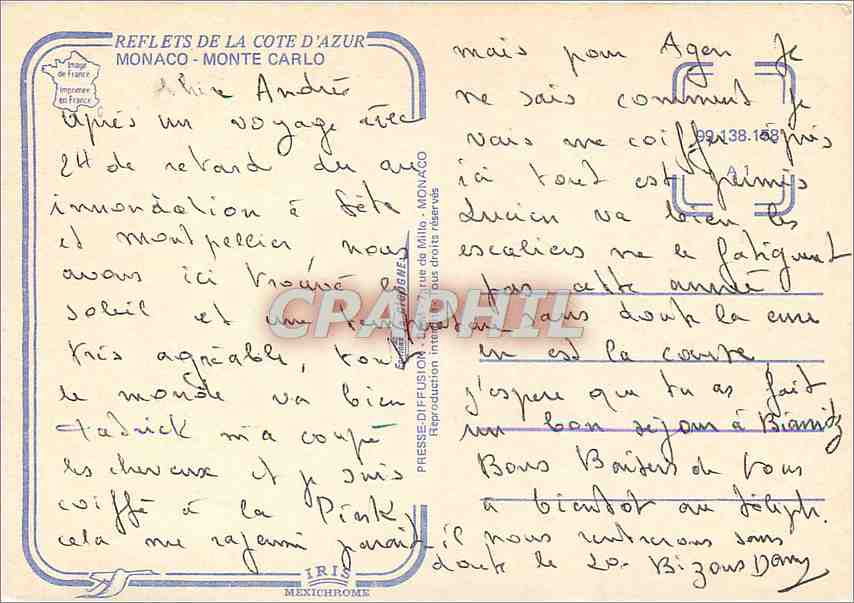 REFLETS DE LA COTE D'AZUR
MONACO - MONTE CARLO
Image
de France
Imprimée
en France
chère Andrée
après un voyage avec
2H de retard du au
innondation à Sète
et Montpellier, nous
avons ici trouvé le
soleil et une température
très agréable, tout
le monde va bien
Patrick m'a coupé
les cheveux et je suis
coiffé à la Pink,
cela me rajeuni parait-il
mais pour Agen je
ne sais comment je
vais me coiffer après
ici tout est permis
Lucien va bien les
escaliers ne le fatiguent
pas cette année
sans doute la cure
en est la cause
j'espere que tu as fait
un bon séjour à Biarritz
Bons Baisers de tous
à bientot au téléph.
nous rentrerons sans
doute le 20. Bizous Dany
99.138.158
A 1
PRESSE-DIFFUSION - rue de Millo - MONACO
Reproduction tous droits réservés
IRIS
MEXICHROME
CPAPHIL